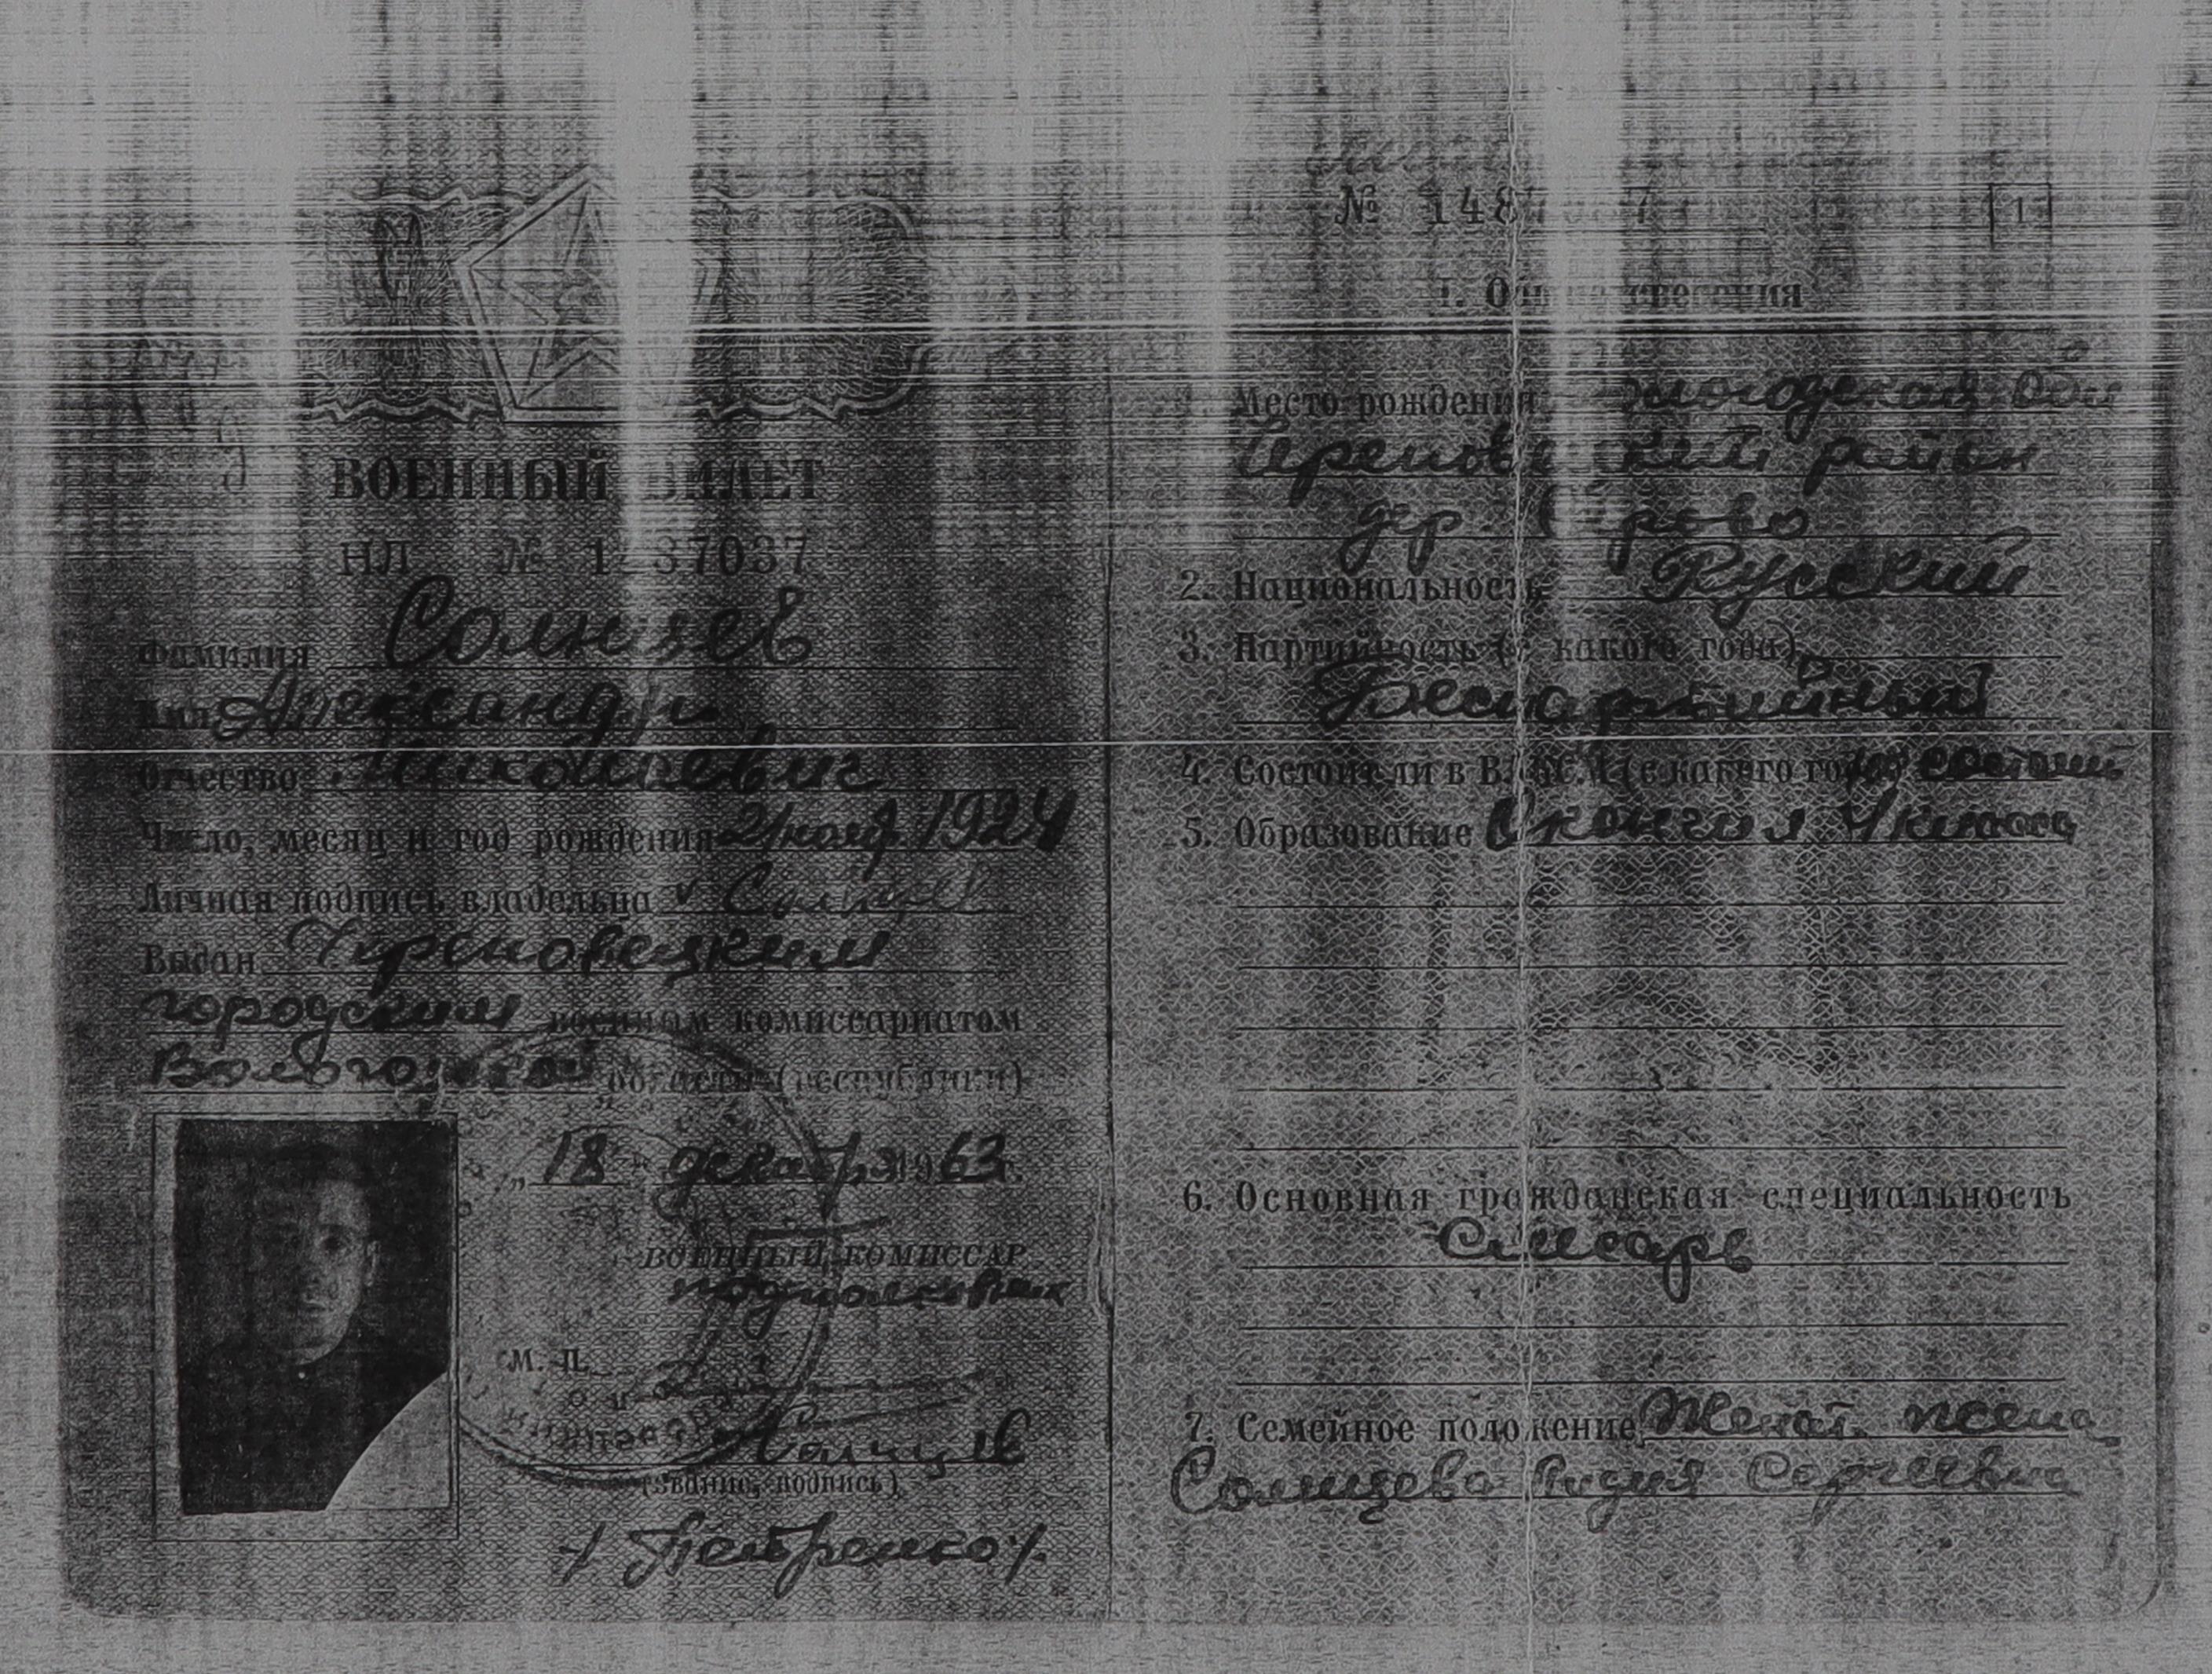 ВОЕННЫЙ БИЛЕТ
НЛ № 1 37037
Фамилия Солнцев
Имя Александр
Отчество Николаевич
Число, месяц и год рождения 21 нояб. 1924
Личная подпись владельца Солнцев
Выдан Череповецким
городским военным комиссариатом
Вологодской области (республики)
„18" декабря 1963 г.
ВОЕННЫЙ КОМИССАР
подполковник
М. П.
(звание, подпись)
/Петренко/
№ 148 7
1
1. Общие сведения
1. Место рождения Вологодская обл
Череповецкий район
дер.
2. Национальность Русский
3. Партийность (с какого года)
Беспартийный
4. Состоит ли в ВЛКСМ (с какого года) не состоит
5. Образование Окончил 4 класса
6. Основная гражданская специальность
Слесарь
7. Семейное положение Женат. жена
Солнцева Лидия Сергеевна